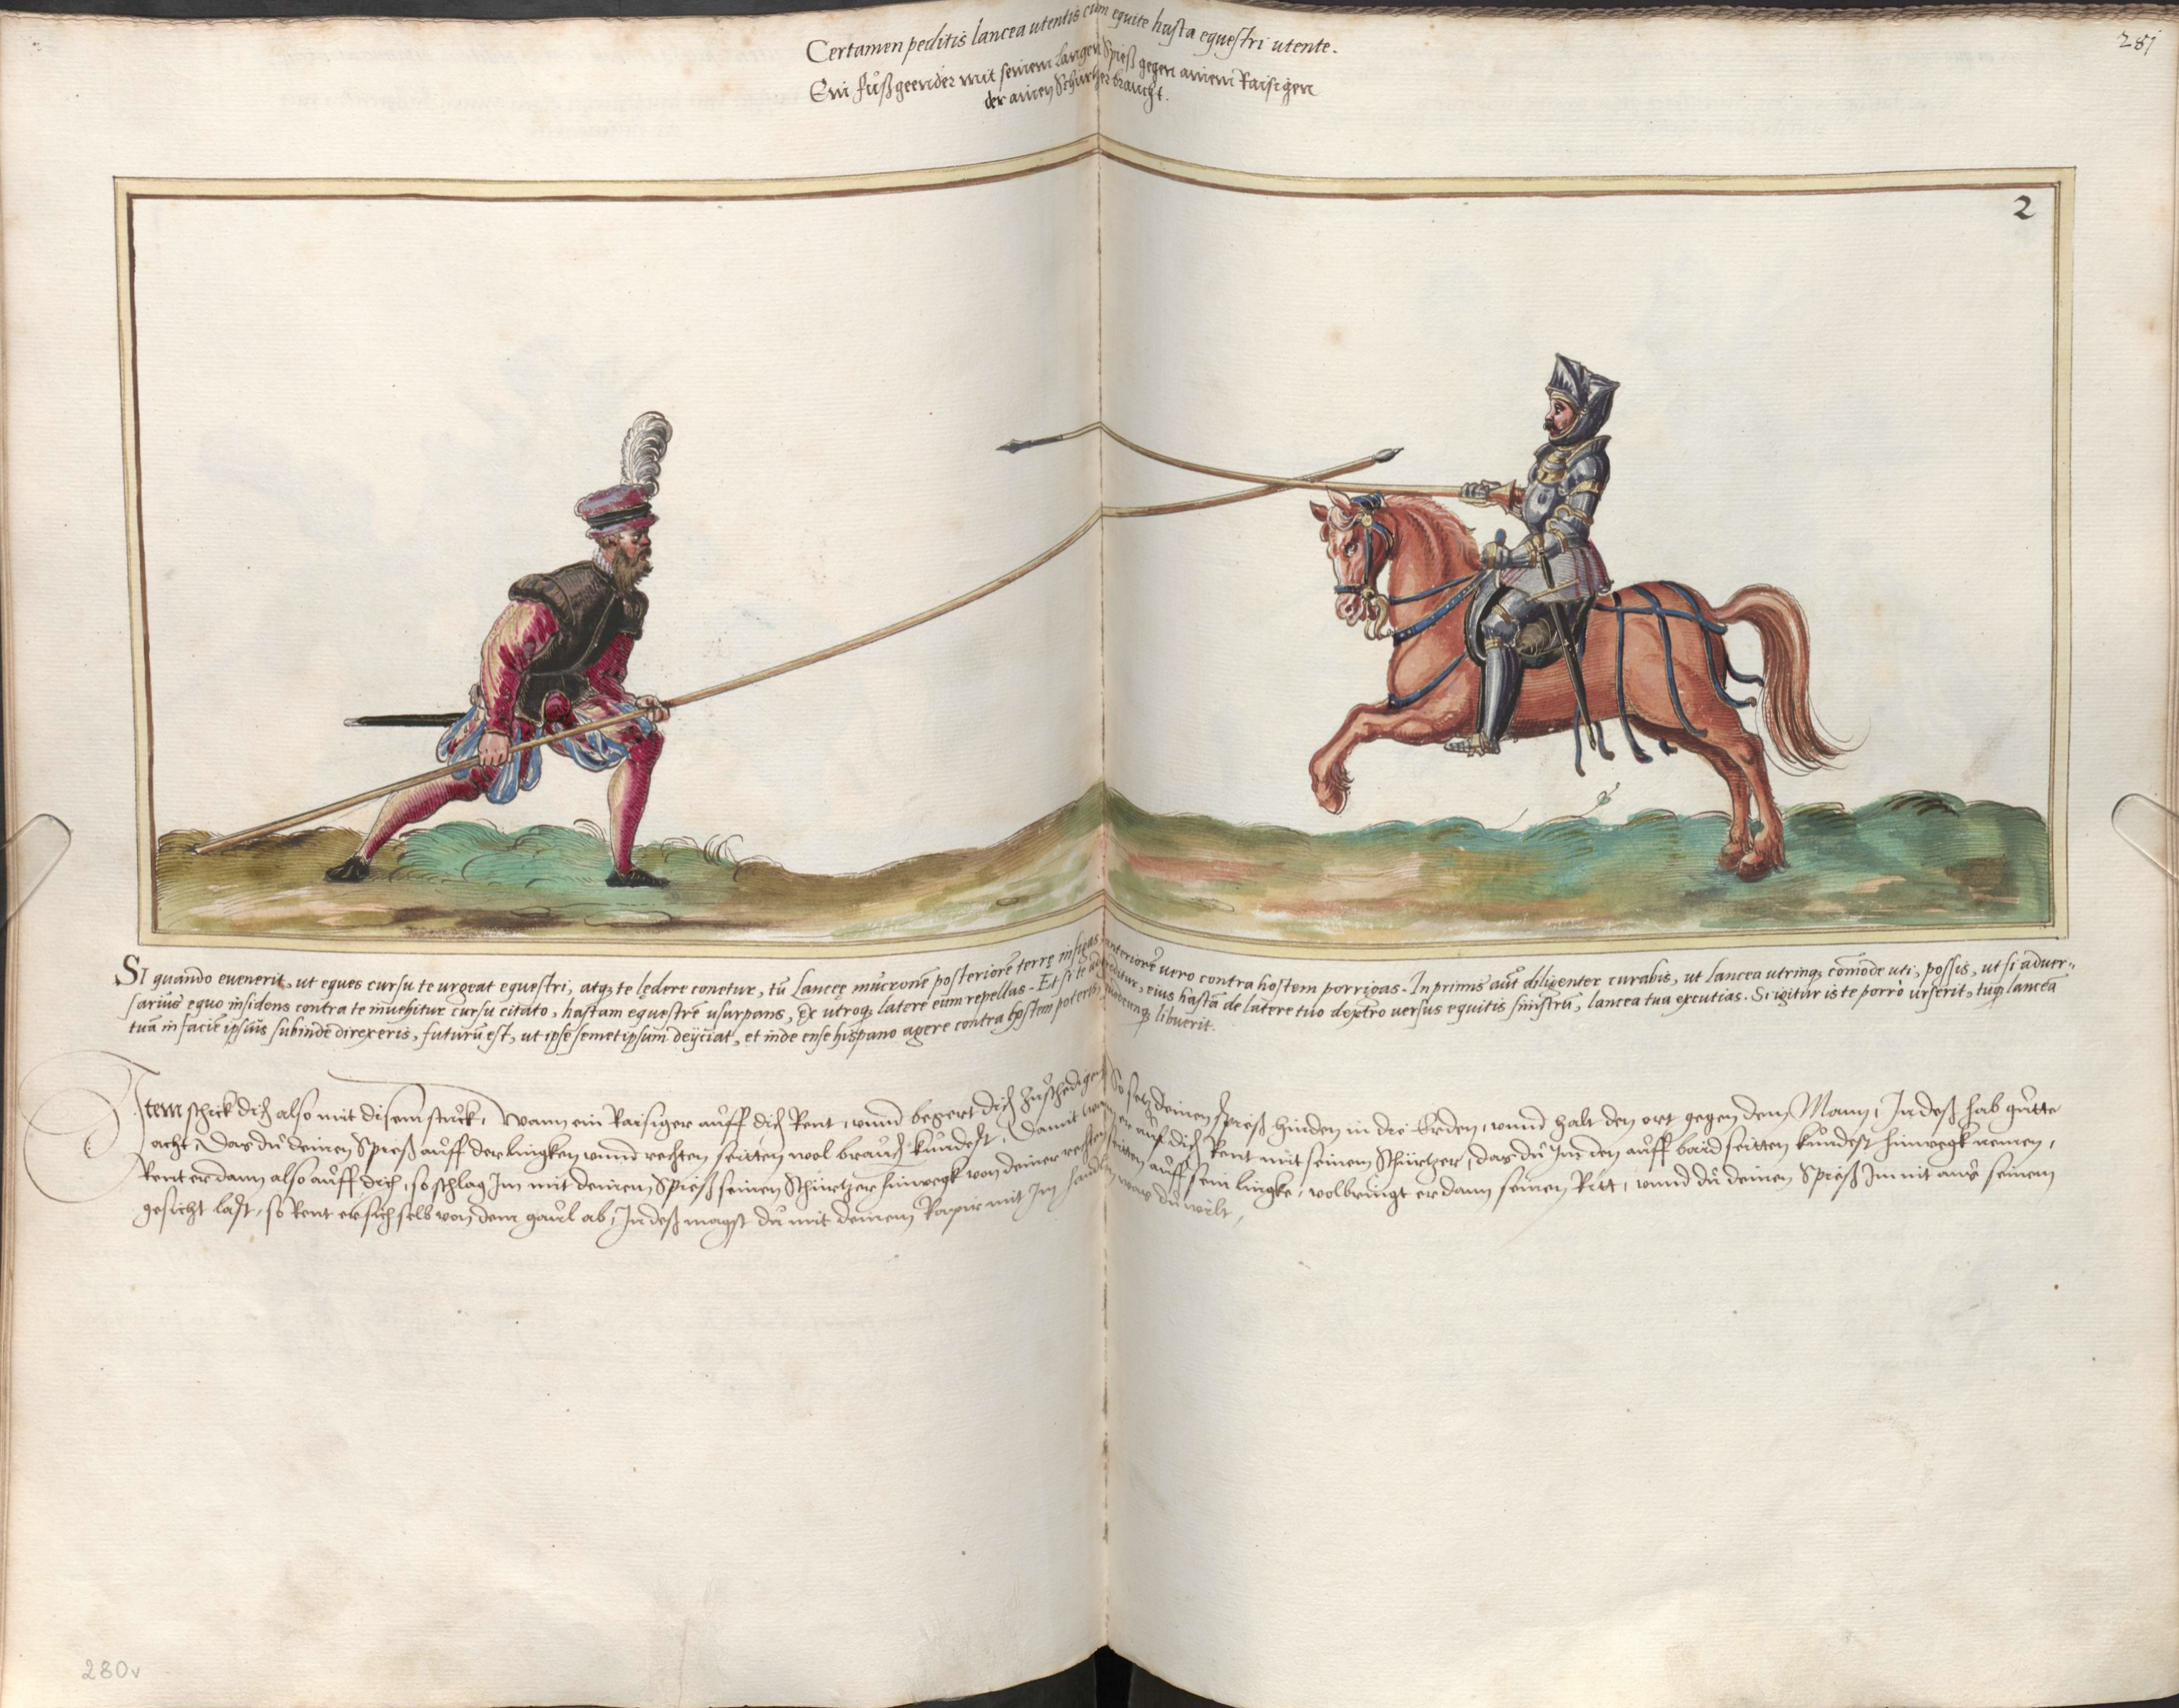 Certamen peditis lancea utentis cum equite hasta equestri utente.
281
Ein fůßgeender mit seinem langen Spieß gegen ainem Raisigen
der ainen Schürtzer braucht.
2
SI quando evenerit, ut eques cursu te urgeat equestri, atq̨ te lędere conetur, tū Lanceę mucronē posteriorē terrę infigas, anteriorē vero contra hostem porrigas. In primis aūt diligenter curabis, ut lancea utrinq̨ cōmode uti, possis, ut si adver-
sarius equo insidens contra te invehitur cursu citato, hastam equestrē usurpans, ex utroq̨ latere eum repellas. Et si te adoritur, eius hastā de latere tuo dextro versus equitis sinistrū, lancea tua excutias. Si igitur is te porrò urserit, tuq̨ lancea
tuā in faciē ipsius subinde direxeris, futurū est, ut ipse semetipsum deijciat, et inde ense hispano agere contra hostem poteris, libuerit.
Item schick dich also mit disem stuck, Wann ein Raisiger auff dich Rent, unnd begert dich zuschedigen So setz deinen spieß hinden in die Erden, unnd halt den ort gegen dem Mann, In deß hab gůtte
acht, Das du deinen Spieß auff der lingken unnd rechten seitten wol brauchen kündest, Damit wann er auf dich Rent mit seinem Schürtzer, das du Im den auff baid seitten kündest hinwegk nemen,
Rent er dann also auff dich, so schlag Im mit deinem Spieß seinen Schürtzer hinwegk von deiner rechten seitten auff sein lingke, volbringt er dann seinen Ritt, unnd du deinen Spieß Im nit aus seinem
gesicht last, so Rent er sich selb von dem gaul ab, In deß magst du mit deinem Rapir mit Im handlen was du wilt,
280v